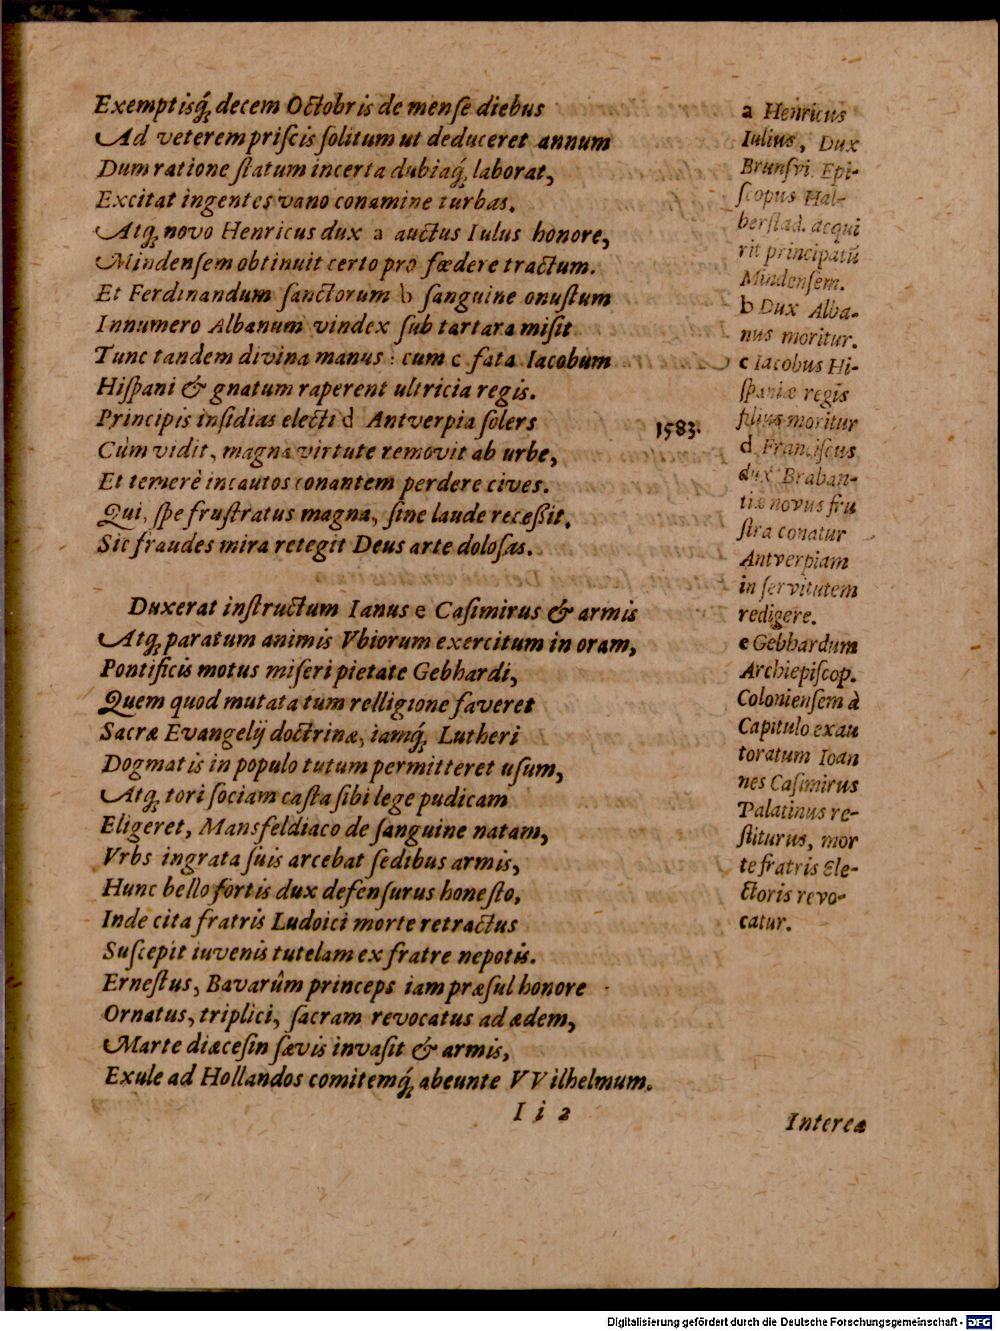 Exemptisq́; decem Octobris de menſe diebus
Ad veterem priſcis ſolitum ut deduceret annum
Dum ratione ſtatum incerta dubiaq́; laborat,
Excitat ingentes vano conamine turbas.
Atq; novo Henricus dux a auctus Iulus honore,
Mindenſem obtinuit certo pro fœdere tractum.
Et Ferdinandum ſanctorum b ſanguine onuſtum
Innumero Albanum vindex ſub tartara miſit
Tunc tandem divina manus: cum c fata Iacobum
Hiſpani & gnatum raperent ultricia regis.
Principis inſidias electi d Antverpia ſolers
Cùm vidit, magna virtute removit ab urbe,
Et temerè incautos conantem perdere cives.
Qui, ſpe fruſtratus magna, ſine laude receßit.
Sic fraudes mira retegit Deus arte doloſas.
Duxerat inſtructum Ianus e Caſimirus & armis
Atq; paratum animis Vbiorum exercitum in oram,
Pontificis motus miſeri pietate Gebhardi,
Quem quod mutata tum relligione faveret
Sacræ Evangelij doctrinæ, iamq́; Lutheri
Dogmatis in populo tutum permitteret uſum,
Atq; tori ſociam caſta ſibi lege pudicam
Eligeret, Mansfeldiaco de ſanguine natam,
Vrbs ingrata ſuis arcebat ſedibus armis,
Hunc bello fortis dux defenſurus honeſto,
Inde cita fratris Ludoici morte retractus
Suſcepit iuvenis tutelam ex fratre nepotis.
Erneſtus, Bavarûm princeps iam præſul honore
Ornatus, triplici, ſacram revocatus ad ædem,
Marte diœceſin ſævis invaſit & armis,
Exule ad Hollandos comitemq́; abeunte VVilhelmum.
I i 2
Intereæ
1583.
a Henricus
Iulius, Dux
Brunſvi. Epi-
ſcopus Hal-
berſtad. acqui
rit principatũ
Mindenſem.
b Dux Alba-
nus moritur.
c Iacobus Hi-
ſpaniæ regis
filius moritur
d Franciſcus
dux Braban-
tiæ novus fru
ſtra conatur
Antverpiam
in ſervitutem
redigere.
e Gebhardum
Archiepiſcop.
Colonienſem à
Capitulo exau
toratum Ioan
nes Caſimirus
Palatinus re-
ſtiturus, mor
te fratris Ele-
ctoris revo-
catur.
Digitalisierung gefördert durch die Deutsche Forschungsgemeinschaft - DFG